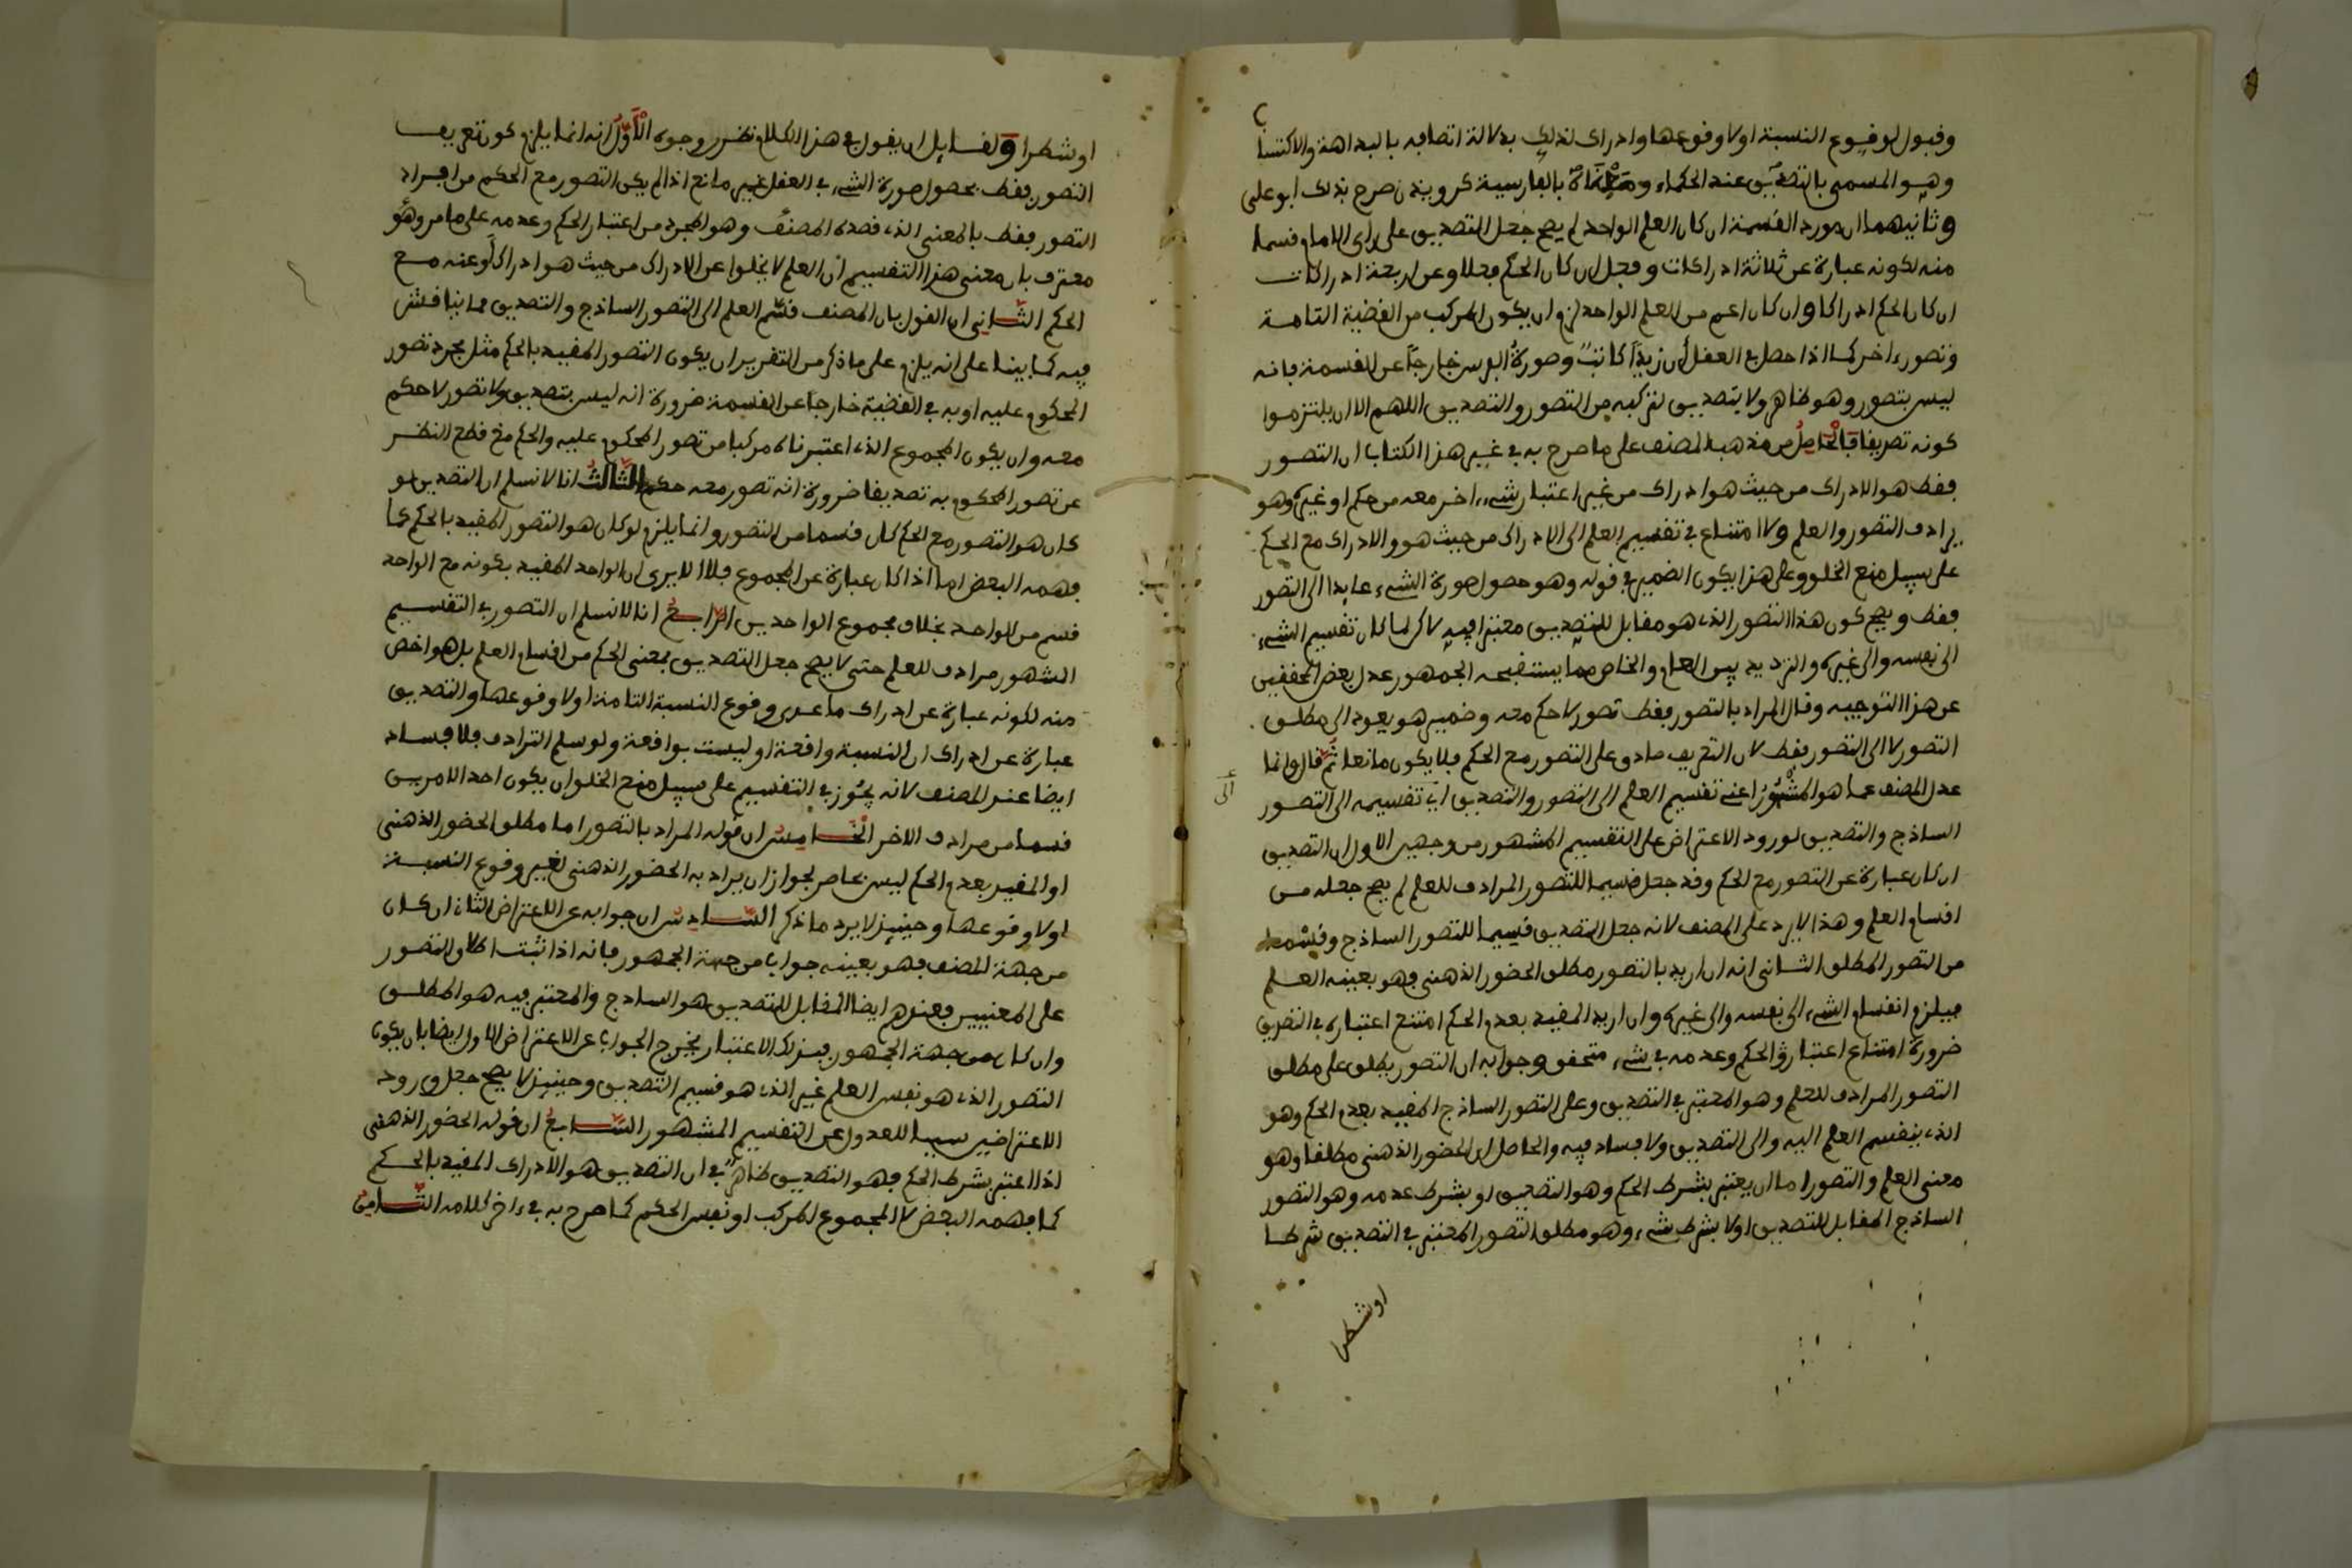 وقبول لوقوع النسبة اولا وقوعها وادراك لذلك بدلالة اتصافه بالبداهة والاكتساب
وهو المسمى بالتصديق عند الحكماء بالفارسية كرويدن صرح بذلك ابو على
وثانيهما ان مورد القسمة ان كان العلم الواحد لم يصح جعل التصديق على راى الامام قسما
منه لكونه عبارة عن ثلاثة ادراكات وفعل ان كان الحكم فعلا وعن اربعة ادراكات
ان كان الحكم ادراكا وان كان اعم من العلم الواحد لزم ان يكون المركب من القضية التامة
وتصور ءاخر كما اذا حصل في العقل أن زيدا كاتب وصورة الفرس خارجا عن القسمة فانه
ليس بتصور وهو ظاهر ولا بتصديق لتركبه من التصور والتصديق اللهم الا ان يلتزموا
كونه تصديقا فالحاصل من مذهب المصنف على ما صرح به في غير هذا الكتاب ان التصور
فقط هو الادراك من حيث هو ادراك من غير اعتبار شيء ءاخر معه من حكم او غيره وهو
يرادف التصور والعلم ولا امتناع في تقسيم العلم الى الادراك من حيث هو والادراك مع الحكم
على سبيل منع الخلو وعلى هذا يكون الضمير في قوله وهو حصول صورة الشيء عايدا الى التصور
فقط ويصح كون هذا التصور الذي هو مقابل للتصديق معتبرا فيه لاكن لما كان تقسيم الشيء
الى نفسه والى غيره والترديد بين العام والخاص مما يستقبحه الجمهور عدل بعض المحققين
عن هذا التوجيه وقال المراد بالتصور فقط تصور لا حكم معه وضمير هو يعود الى مطلق
التصور لا الى التصور فقط لان التعريف صادق على التصور مع الحكم فلا يكون مانعا ثم قال وانما
عدل المصنف عما هو المشهور اعنى تقسيم العلم الى التصور والتصديق الى تقسيمه الى التصور
الى
الساذج والتصديق لورود الاعتراض على التقسيم المشهور من وجهين الاول ان التصديق
ان كان عبارة عن التصور مع الحكم وقد جعل قسيما للتصور المرادف للعلم لم يصح جعله من
اقسام العلم وهذا لا يرد على المصنف لانه جعل التصديق قسيما للتصور الساذج وقسما
من التصور المطلق الثاني انه ان اريد بالتصور مطلق الحضور الذهنى فهو بعينه العلم
فيلزم انقسام الشيء الى نفسه والى غيره وان اريد المقيد بعدم الحكم امتنع اعتباره في التصديق
ضرورة امتناع اعتبار الحكم وعدمه في شيء متحقق وجوابه ان التصور يطلق على مطلق
التصور المرادف للعلم وهو المعتبر في التصديق وعلى التصور الساذج المقيد بعدم الحكم وهو
الذي ينقسم العلم اليه والى التصديق ولا فساد فيه والحاصل ان الحضور الذهنى مطلقا وهو
معنى العلم والتصور اما ان يعتبر بشرط الحكم وهو التصديق او بشرط عدمه وهو التصور
الساذج المقابل للتصديق اولا بشرط شيء وهو مطلق التصور المعتبر في التصديق شرطا
او شطرا
او شطرا ولقايل ان يقول في هذا الكلام نظر من وجوه الاول انه انما يلزم كون تعريف
التصور فقط بحصول صورة الشيء في العقل غير مانع اذا لم يكن التصور مع الحكم من افراد
التصور فقط بالمعنى الذي قصده المصنف وهو المجرد من اعتبار الحكم وعدمه على ما مر وهو
معترف بان معنى هذا التقسيم ان العلم لا يخلوا عن الادراك من حيث هو ادراك او عنه مع
الحكم الثاني ان القول بان المصنف قسم العلم الى التصور الساذج والتصديق مما يناقش
فيه كما بينا على انه يلزم على ما ذكر من التقرير ان يكون التصور المقيد بالحكم مثل مجرد تصور
المحكوم عليه او به في القضية خارجا عن القسمة ضرورة انه ليس بتصديق ولا تصور لا حكم
معه وان يكون المجموع الذي اعتبرناه مركبا من تصور المحكوم عليه والحكم مع قطع النظر
عن تصور المحكوم به تصديقا ضرورة انه تصور معه حكم الثالث انا لا نسلم ان التصديق لو
كان هو التصور مع الحكم كان قسما من التصور وانما يلزم لو كان هو التصور المقيد بالحكم كما
فهمه البعض اما اذا كان عبارة عن المجموع فلا الا يرى ان الواحد المقيد بكونه مع الواحد
قسم من الواحد بخلاف مجموع الواحدين الرابع انا لا نسلم ان التصور في التقسيم
المشهور مرادف للعلم حتى لا يصح جعل التصديق بمعنى الحكم من اقسام العلم بل هو اخص
منه لكونه عبارة عن ادراك ما عدى وقوع النسبة التامة اولا وقوعها والتصديق
عبارة عن ادراك ان النسبة واقعة او ليست بواقعة ولو سلم الترادف فلا فساد
ايضا عند المصنف لانه يجوز في التقسيم على سبيل منع الخلو ان يكون احد الامرين
قسما من مرادف الاخر الخامس ان قوله المراد بالتصور اما مطلق الحضور الذهنى
او المقيد بعدم الحكم ليس بحاصر لجواز ان يراد به الحضور الذهنى لغير وقوع النسبة
اولا وقوعها وحينيذ لا يرد ما ذكر السادس ان جوابه عن الاعتراض الثاني ان كان
من جهة المصنف فهو بعينه جواب من جهة الجمهور فانه اذا ثبت اطلاق التصور
على المعنيين فعندهم ايضا المقابل للتصديق هو الساذج والمعتبر فيه هو المطلق
وان كان من جهة الجمهور فبذلك الاعتبار يخرج الجواب عن الاعتراض الاول ايضا بان يكون
التصور الذي هو نفس العلم غير الذي هو قسيم التصديق وحينيذ لا يصح جعل ورود
الاعتراضين سببا للعدول عن التقسيم المشهور السابع ان قوله الحضور الذهنى
اذا اعتبر بشرط الحكم فهو التصديق ظاهر في ان التصديق هو الادراك المقيد بالحكم
كما فهمه البعض لا المجموع المركب او نفس الحكم كما صرح به في ءاخر كلامه الثامن